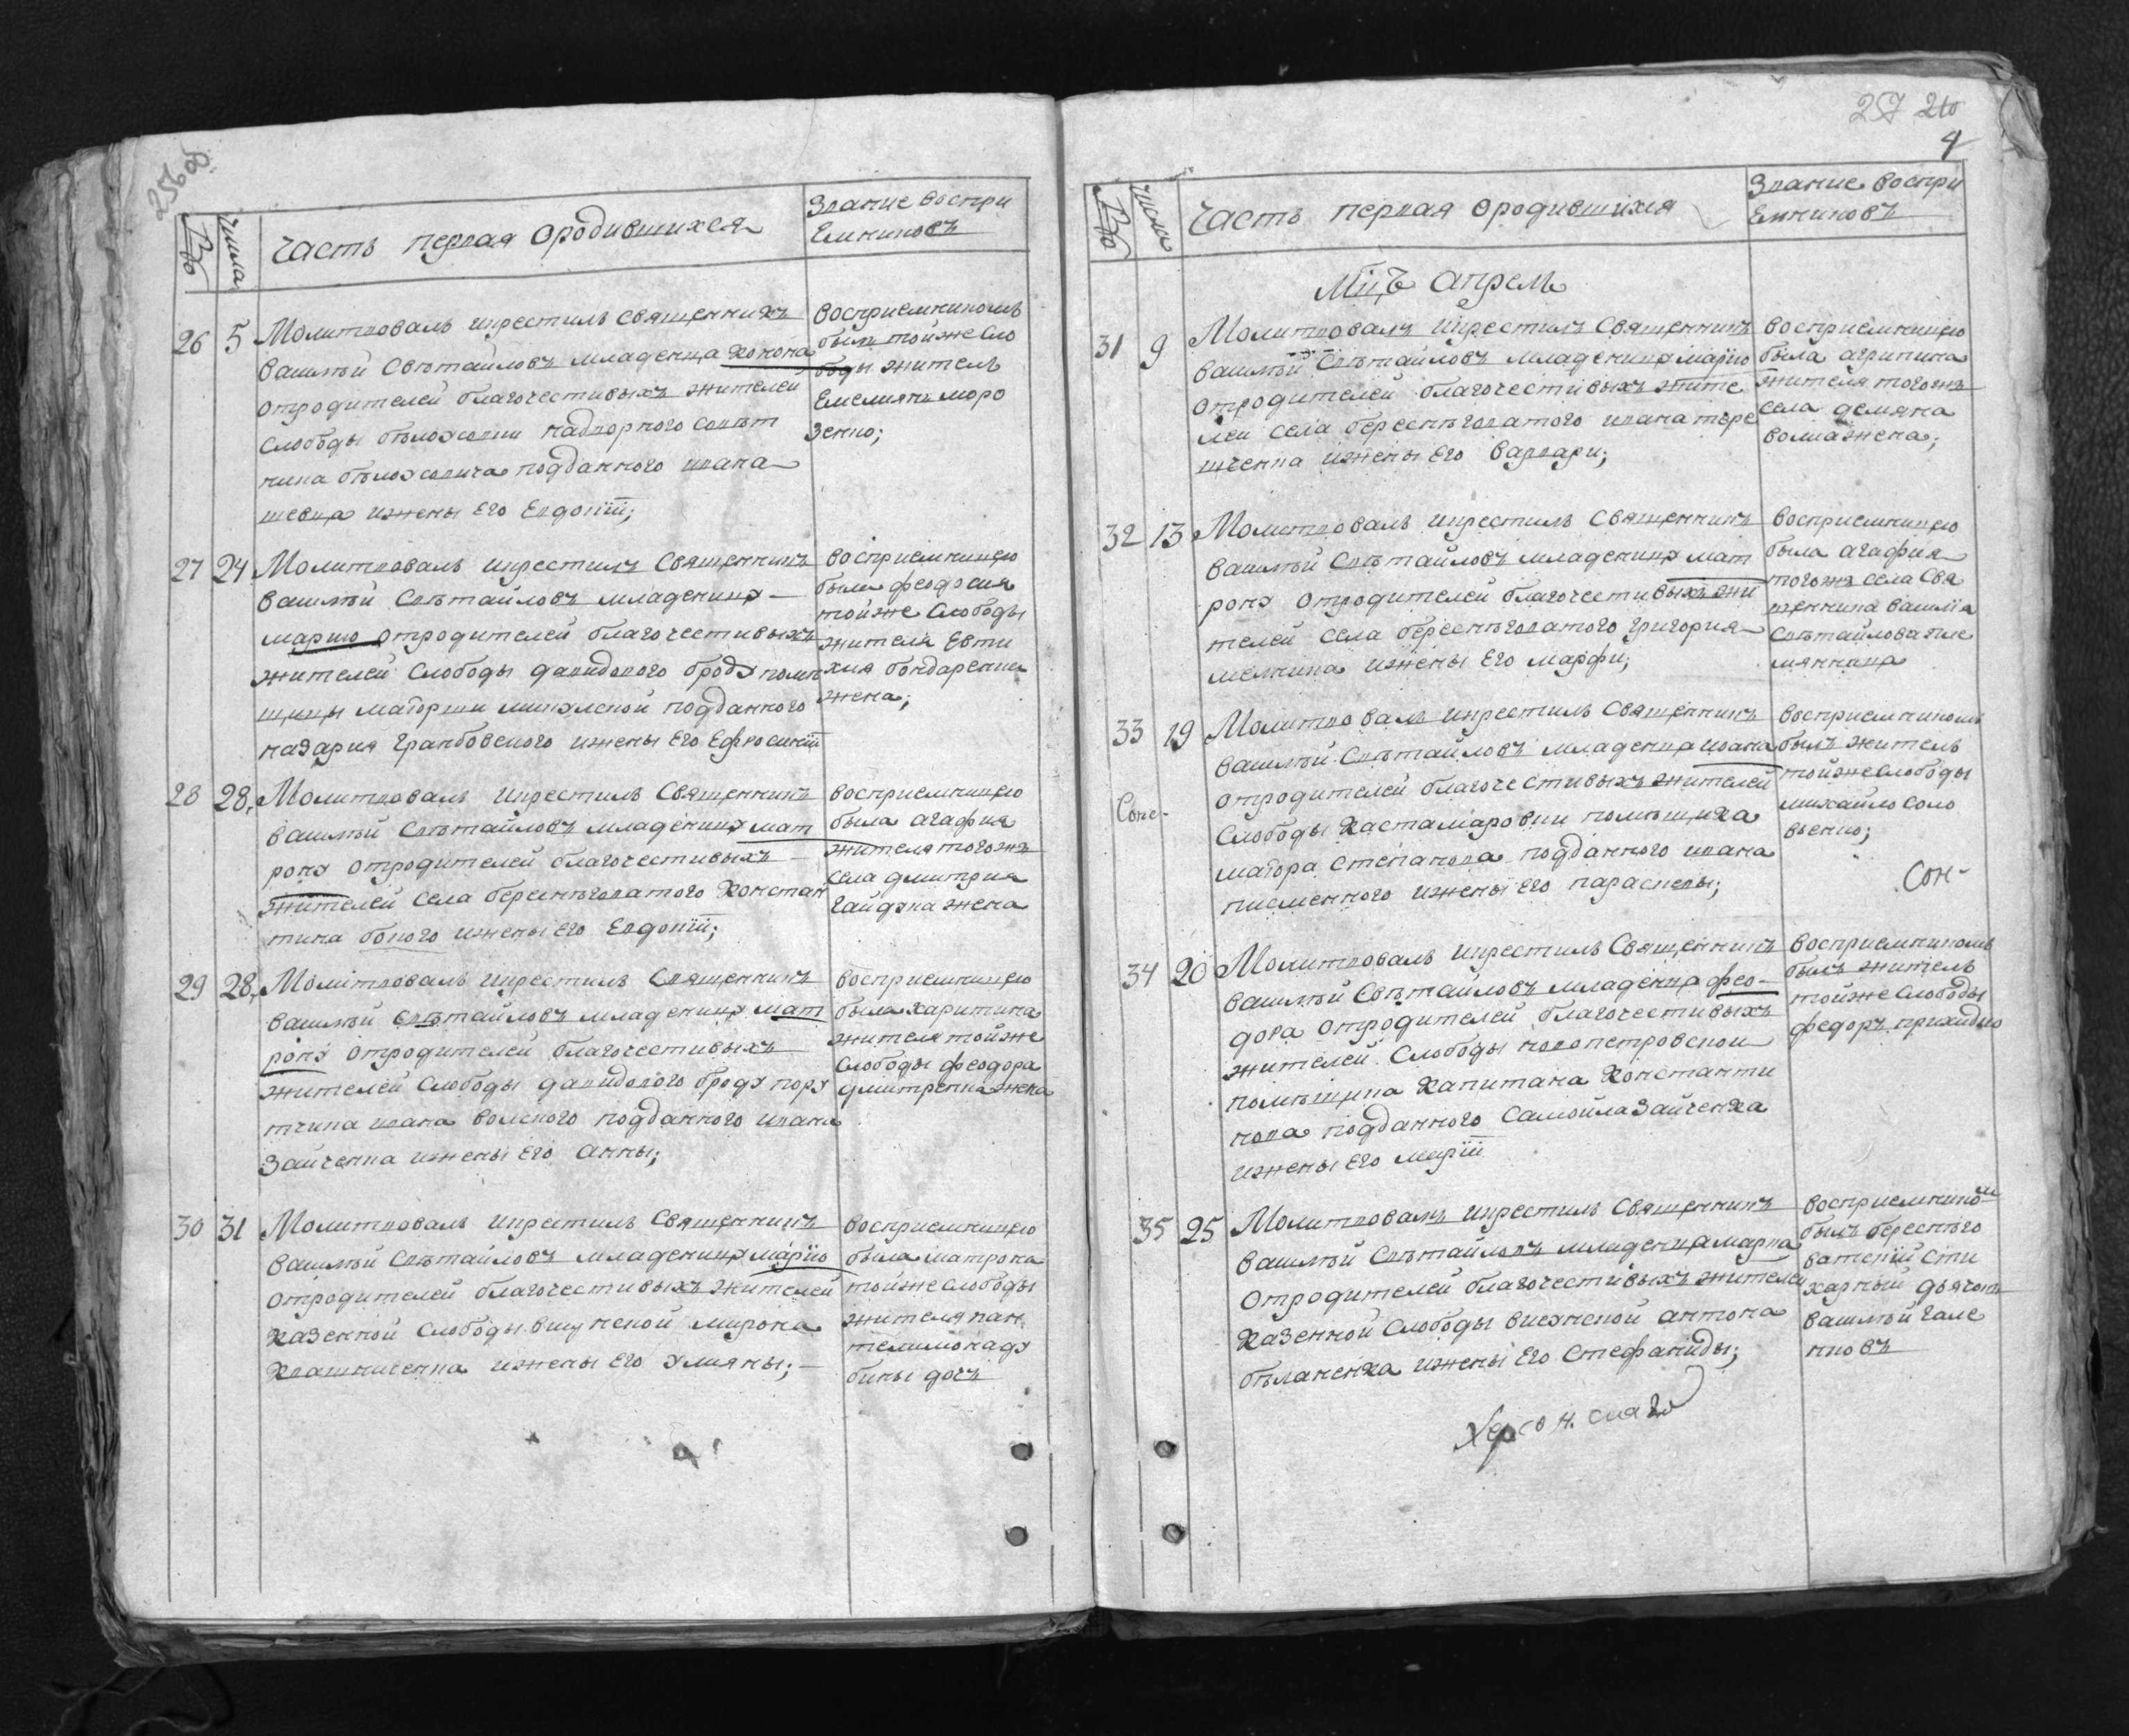 256 об
Число
Часть первая ородившихся
Звание воспри
Емниковъ
26 5 Молитвовалъ икрестилъ священникъ
василий Свѣтайловъ младенца конона
отродителей благочестивыхъ жителей
слободы бѣлоховки надворного совѣт
ника бѣлоховича подданного ивана
шевца ижены Его Евдокіи;
восприемникомъ
былъ тойже сло
боды житель
Емелиянъ моро
зенко;
27 24 Молитвовалъ икрестилъ Священникъ
василий Свѣтайловъ младеницу
марию отродителей благочестивыхъ
жителей Слободы давидового броду помѣ
щицы маіорши подданного
назария грамбовского ижены Его Ефросиніи
восприемницею
была феодосия
тойже Слободы
жителя Евти
хия бондаренка
жена;
28 28 Молитвовалъ икрестилъ Священникъ
василий Свѣтайловъ младеницу мат
рону отродителей благочестивыхъ
жителей Села береснѣговатого констан
тина бокого ижены Его Евдокіи;
восприемницею
была агафия
жителя тогожъ
села дмитрия
гайдука жена
29 28 Молитвовалъ икрестилъ Священникъ
василий Свѣтайловъ младеницу мат
рону отродителей благочестивыхъ
жителей Слободы давидового броду пору
тчика ивана волского подданного ивана
Зайченка ижены Его анны;
восприемницею
была харитина
жителя тойже
Слободы феодора
дмитренка жена
30 31 Молитвовалъ икрестилъ Священникъ
василий Свѣтайловъ младеницу марию
отродителей благочестивыхъ жителей
казенной Слободы висунской мирона
квашниченка ижены Его улияны;
восприемницею
была матрона
тойже слободы
жителя пан
телимона ду
бины дочъ
257 210
4
Число
Часть первая ородившихся
Звание воспри
Емниковъ
Мцъ апрель
31 9 Молитвовалъ икрестилъ Священникъ
василий Свѣтайловъ младеницу марию
отродителей благочестивыхъ жите
лей села береснѣговатого ивана тере
щченка ижены Его варвари;
восприемницею
была агрипина
жителя тогожъ
села демяна
волика жена;
32 13 Молитвовалъ икрестилъ Священникъ
василий Свѣтайловъ младеницу мат
рону отродителей благочестивыхъ жи
телей села береснѣговатого григория
мелника ижены Его марфи;
восприемницею
была агафия
тогожъ села Свя
щенника василія
Свѣтайлова пле
мянница
33 19 Молитвовалъ икрестилъ Священникъ
василий Свѣтайловъ младенца ивана
отродителей благочестивыхъ жителей
Слободы Кастамаровки помѣщика
маіора степанова подданного ивана
писменного ижены Его параскевы;
восприемникомъ
былъ житель
тойже Слободы
михайло Соло
вьенко;
34 20 Молитвовалъ икрестилъ Священникъ
василий Свѣтайловъ младенца фео
дора отродителей благочестивыхъ
жителей Слободы новопетровской
помѣщика Капитана Константи
нова подданного Самойла Зайченка
ижены Его маріи
восприемникомъ
былъ житель
тойже Слободы
федоръ приходко
35 25 Молитвовалъ икрестилъ Священникъ
василий Свѣтайловъ младенца марка
отродителей благочестивыхъ жителей
Казенной Слободы висунской антона
бѣланенка ижены Его Стефаниды;
восприемникомъ
былъ береснѣго
ватскій Сти
харный дьячокъ
василий
Херсон. скаго